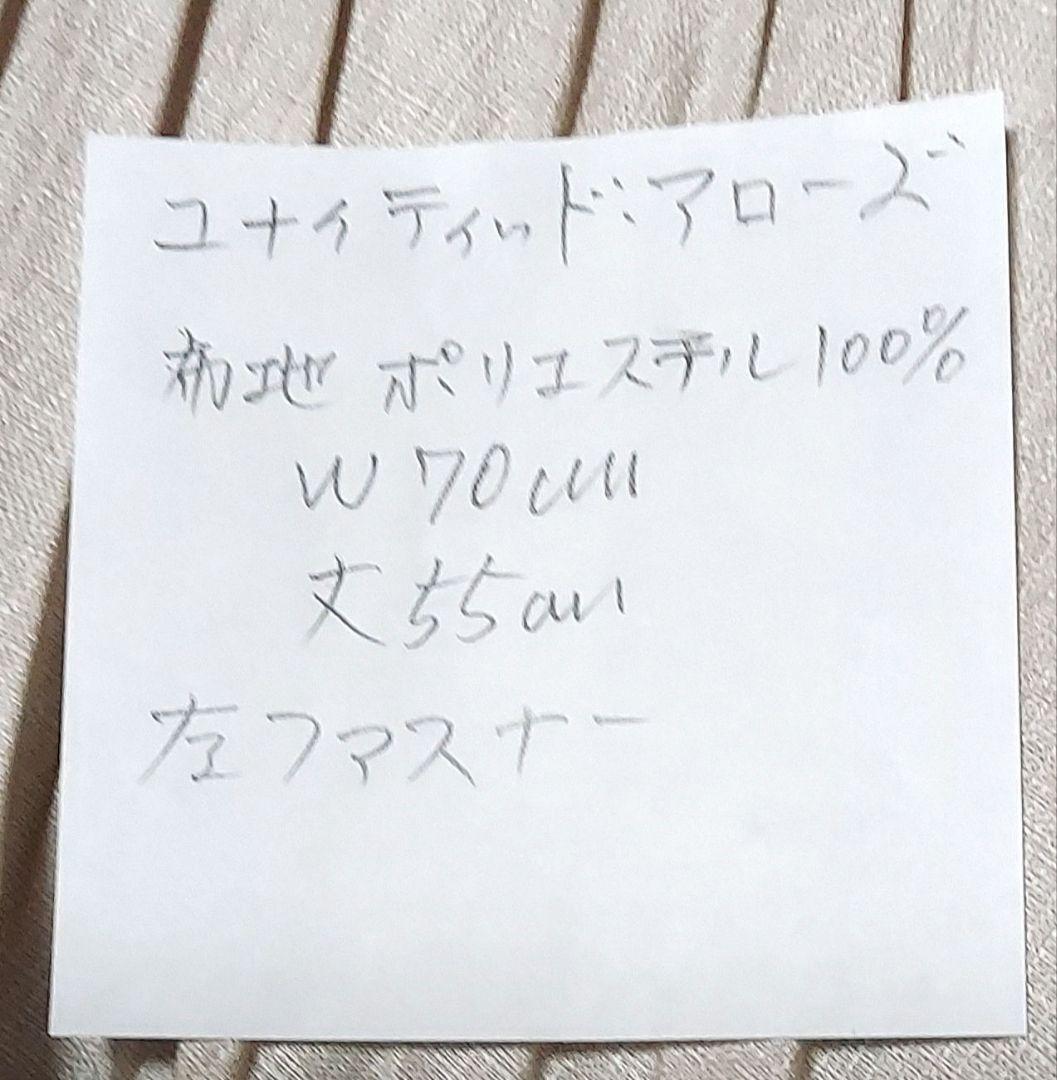 ユナイティッド:アローズ
布地 ポリエステル100%
W 70cm
丈 55cm
左ファスナー